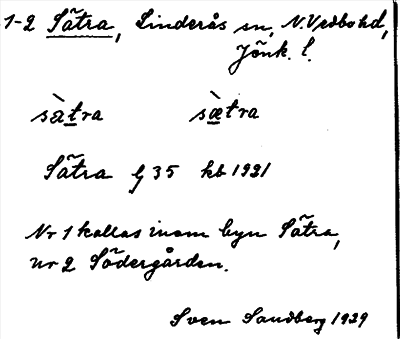 1-2 Sätra, Linderås sn, N. Vedbo hd,
Jönk. l.
sàtra sæ̀tra
Sätra Lj 35 kb 1921
Nr 1 kallas inom byn Sätra,
nr 2 Södergården.
Sven Sandberg 1929